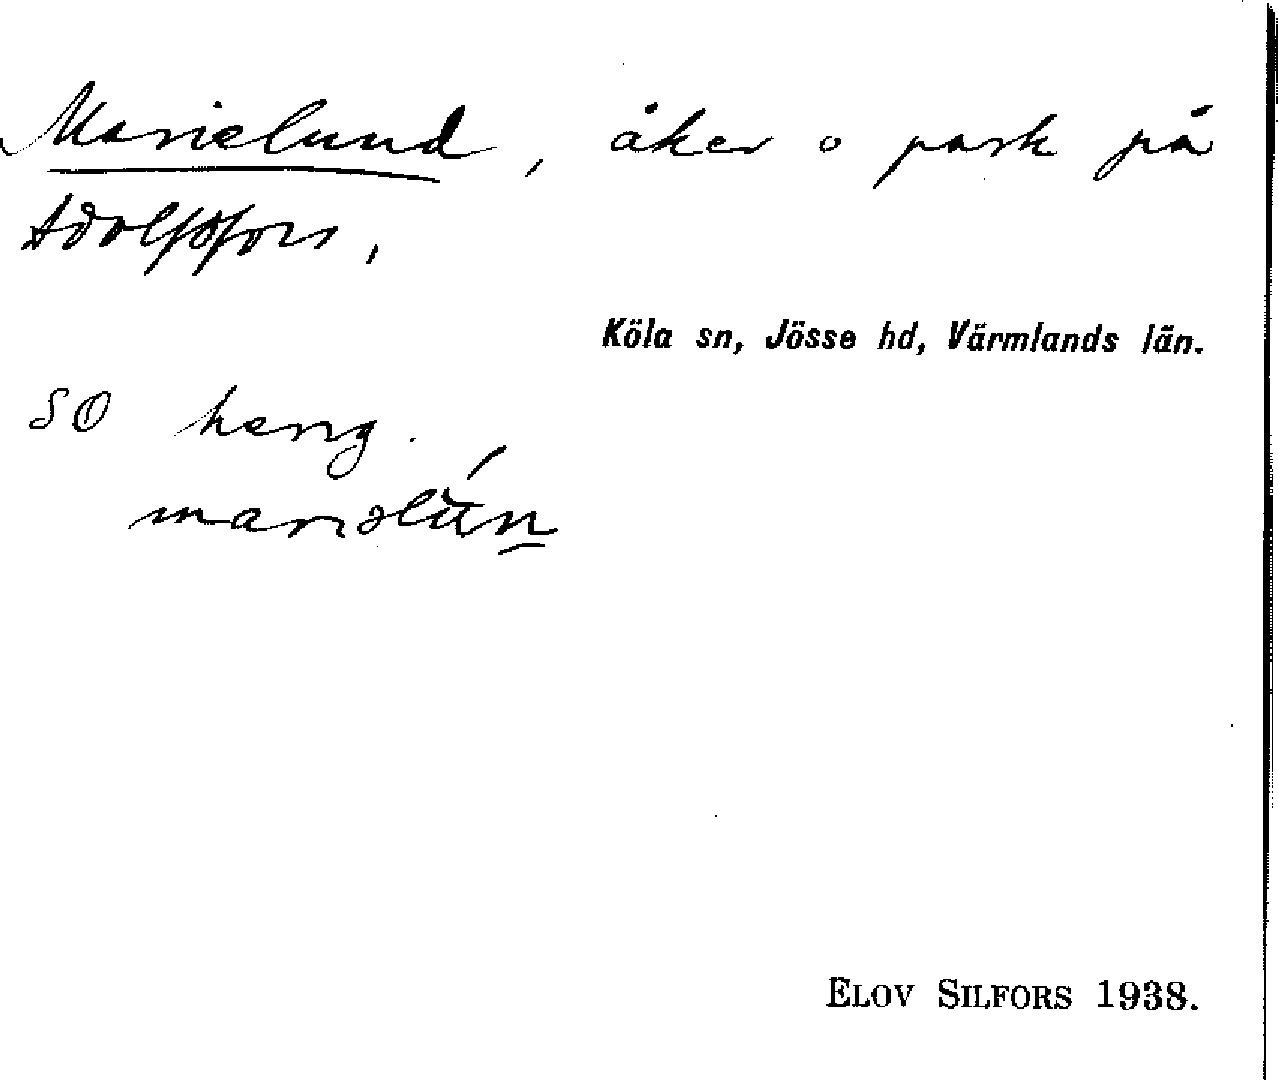 Marielund, åker o park på
Adolfsfors,
Köla sn, Jösse hd, Värmlands län.
SO herrg.
ELOV SILFORS 1938.